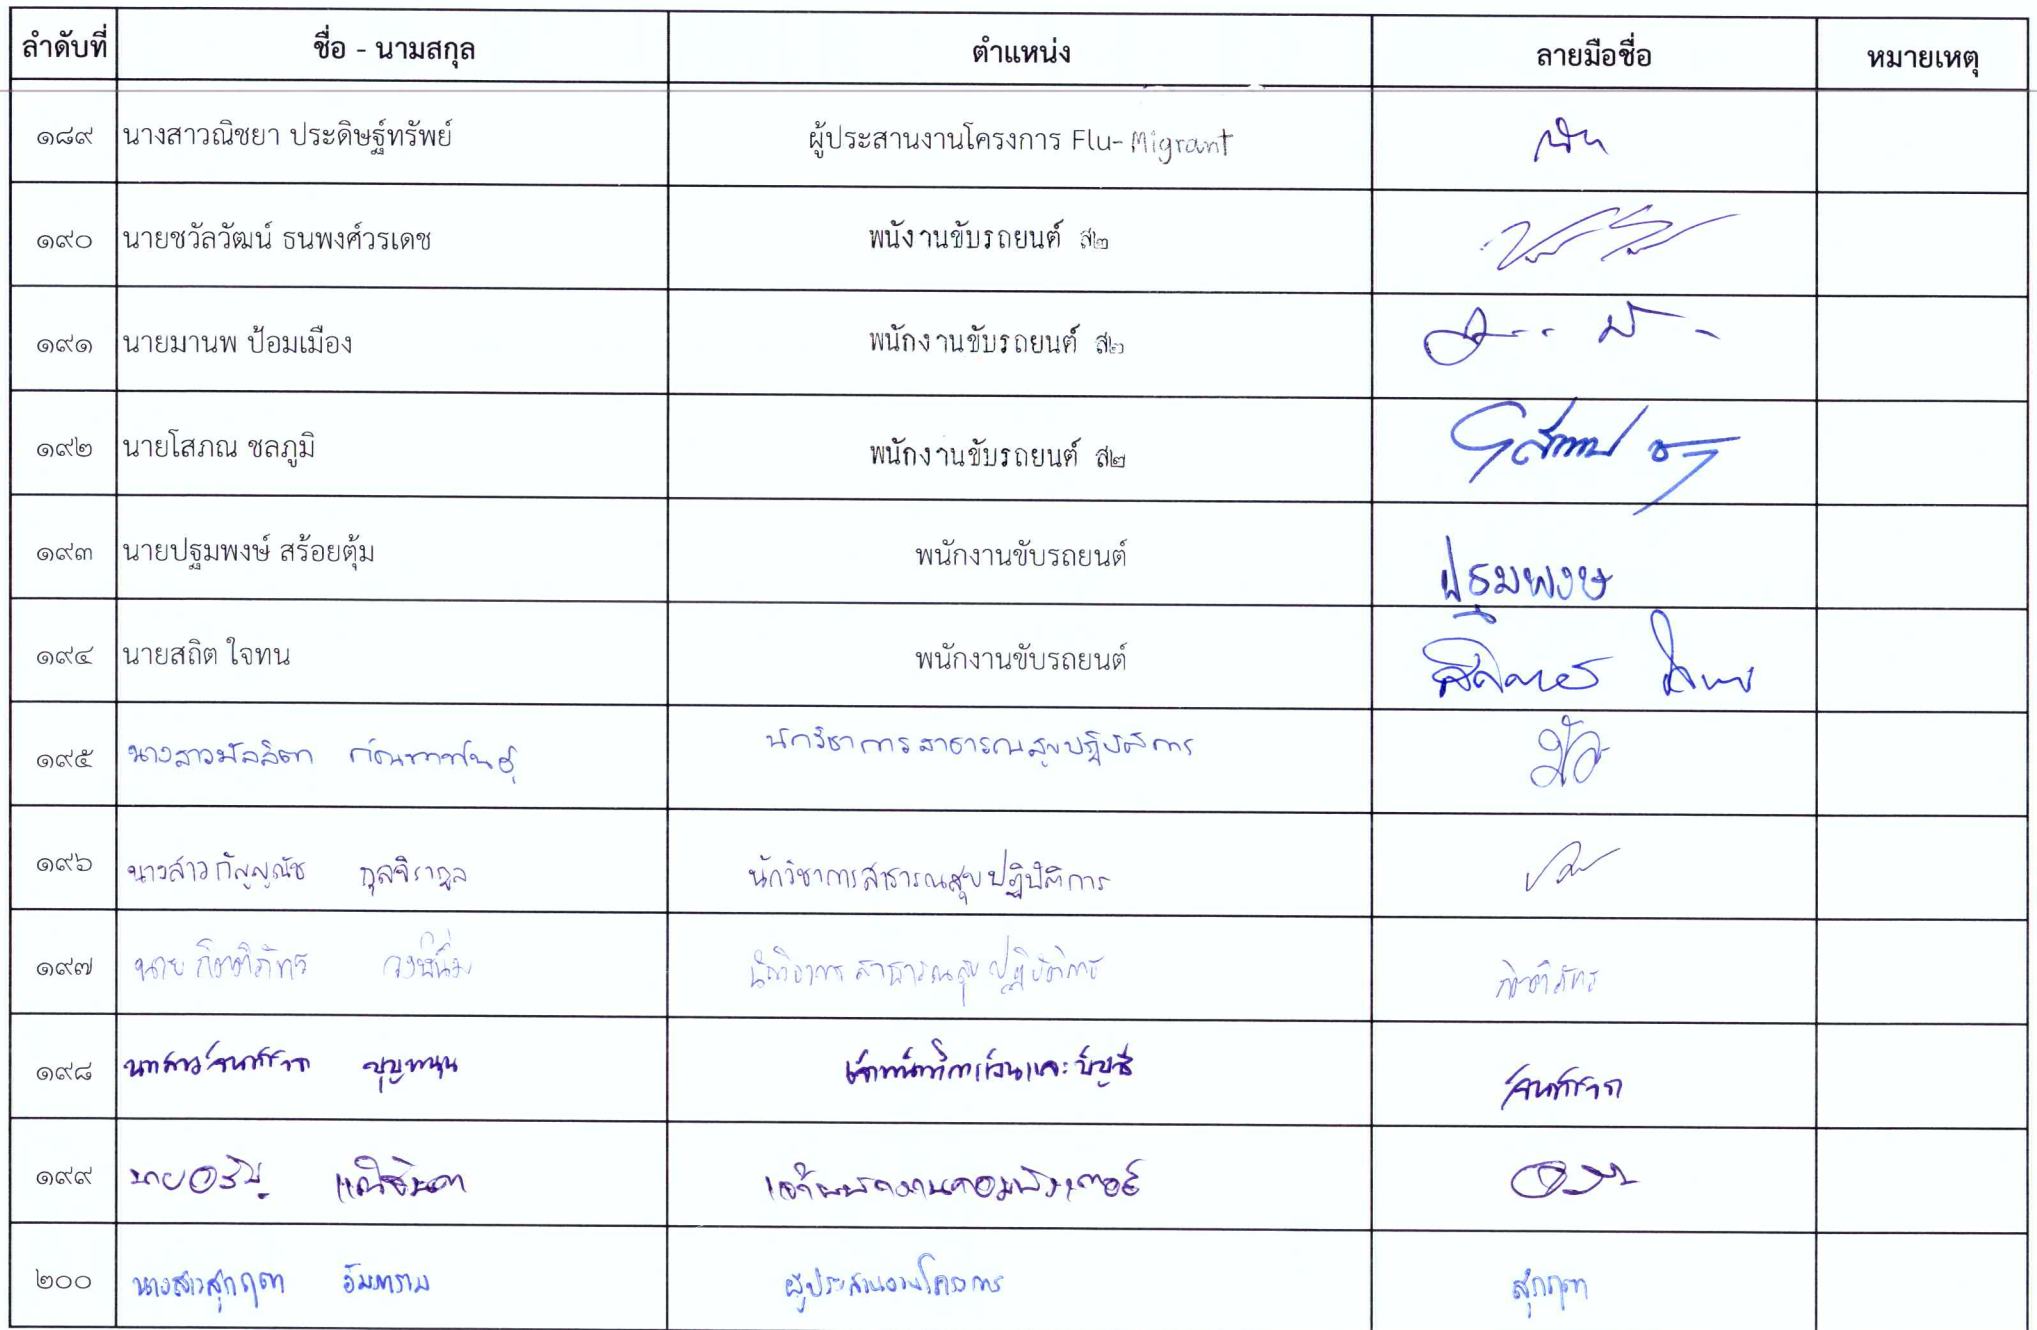 ลำดับที่ ชื่อ - นามสกุล ตำแหน่ง ลายมือชื่อ หมายเหตุ
๑๘๙ นางสาวณิชยา ประดิษฐ์ทรัพย์ ผู้ประสานงานโครงการ Flu-Migrant
๑๙๐ นายชวัลวัฒน์ ธนพงศ์วรเดช พนังานขับรถยนต์ ส๒
๑๙๑ นายมานพ ป้อมเมือง พนักงานขับรถยนต์ ส๒
๑๙๒ นายโสภณ ชลภูมิ พนักงานขับรถยนต์ ส๒
๑๙๓ นายปฐมพงษ์ สร้อยตุ้ม พนักงานขับรถยนต์ ปฐมพงษ
๑๙๔ นายสถิต ใจทน พนักงานขับรถยนต์
๑๙๕ นางสาวมัลลิตา นักวิชาการสาธารณสุขปฏิบัติการ
๑๙๖ นางสาวกัญญณัช กุลจิรากูล นักวิชาการสาธารณสุขปฏิบัติการ
๑๙๗ นาย กิตติภัทร วงษ์นิ่ม นักวิชาการสาธารณสุขปฏิบัติการ กิตติภัทร
๑๙๘ นางสาว บุญหนุน เจ้าหน้าที่การเงินและบัญชี
๑๙๙ นาย เจ้าพนักงานคอมพิวเตอร์
๒๐๐ นางสาวสุกฤตา อิ่มทราม ผู้ประสานงานโครงการ สุกฤตา